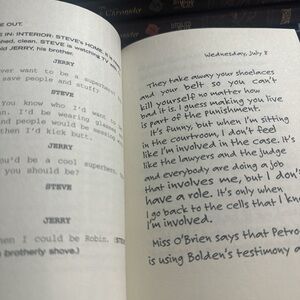 Chronicles
E OUT.
E IN: INTERIOR: STEVE's HOME.
shed, clean. STEVE is watching TV
d JERRY, his brother.
JERRY
ver want to be a superhero?
save people and stuff?
STEVE
You know who I'd want to
an. I'd be wearing glasse
nd people would be messing
then I'd kick butt.
JERRY
u'd be a cool superhero.
you should be?
STEVE
JERRY
hen I could be Robin. (STE
a brotherly shove.)
Wednesday, July 8
They take away your shoelaces
and your belt so you can't
kill yourself no matter how
bad it is. I guess making you live
is part of the punishment.
It's funny, but when I'm sitting
in the courtroom, I don't feel
like I'm involved in the case. It's
like the lawyers and the judge
and everybody are doing a job
that involves me, but I don't
have a role. It's only when
I go back to the cells that I know
I'm involved.
Miss O'Brien says that Petro
is using Bolden's testimony a